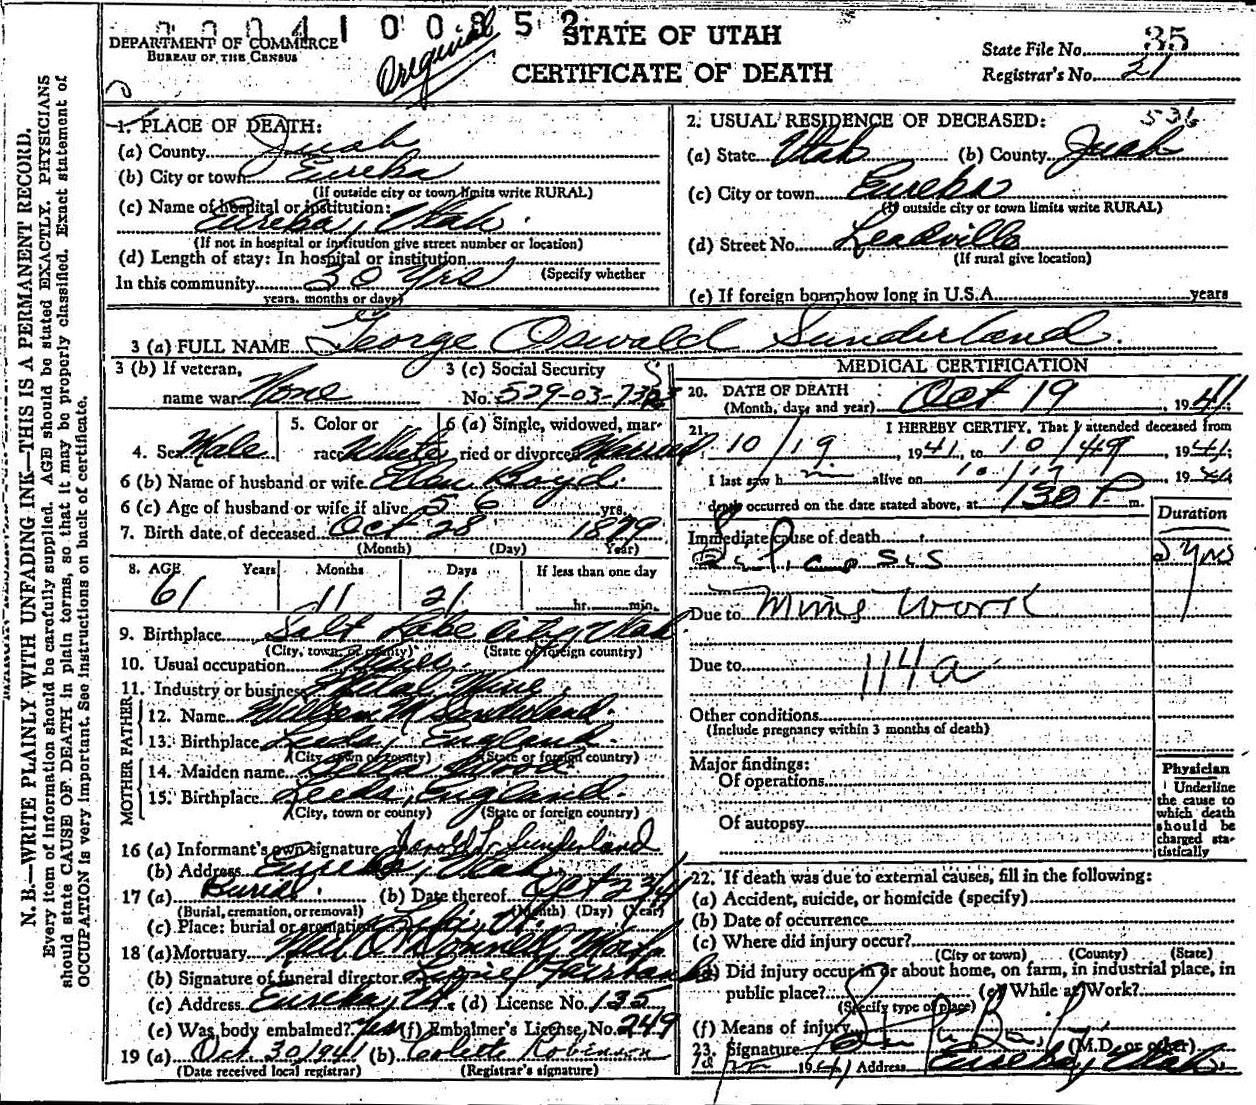 0 0 0 4 1 0 0 8 5 2
DEPARTMENT OF COMMERCE
BUREAU OF THE CENSUS
Original
STATE OF UTAH
CERTIFICATE OF DEATH
State File No. 35
Registrar's No. 21
N. B.—WRITE PLAINLY WITH UNFADING INK—THIS IS A PERMANENT RECORD.
Every item of information should be carefully supplied. AGE should be stated EXACTLY. PHYSICIANS
should state CAUSE OF DEATH in plain terms, so that it may be properly classified. Exact statement of
OCCUPATION is very important. See instructions on back of certificate.
1. PLACE OF DEATH:
(a) County Juab
(b) City or town Eureka
(If outside city or town limits write RURAL)
(c) Name of hospital or institution:
Eureka, Utah.
(If not in hospital or institution give street number or location)
(d) Length of stay: In hospital or institution
(Specify whether
In this community 30 Yrs
years, months or days)
536
2. USUAL RESIDENCE OF DECEASED:
(a) State Utah (b) County Juab
(c) City or town Eureka
(If outside city or town limits write RURAL)
(d) Street No. Leadville
(If rural give location)
(e) If foreign born, how long in U.S.A. years
3 (a) FULL NAME George Oswald Sunderland.
3 (b) If veteran, name war None
3 (c) Social Security No. 529-03-
4. Sex Male
5. Color or race White
6 (a) Single, widowed, married or divorced Married
6 (b) Name of husband or wife Ellen Boyd.
6 (c) Age of husband or wife if alive 56 yrs.
7. Birth date of deceased Oct 28 1879
(Month) (Day) Year)
8. AGE Years Months Days If less than one day
61 11 21 hr. min.
9. Birthplace Salt Lake City, Utah
(City, town, or county) (State or foreign country)
10. Usual occupation Miner.
11. Industry or business Metal Mine.
FATHER
12. Name William M Sunderland.
13. Birthplace Leeds, England
(City, town or county) (State or foreign country)
MOTHER
14. Maiden name Wood
15. Birthplace Leeds, England.
(City, town or county) (State or foreign country)
16 (a) Informant's own signature Sunderland
(b) Address Eureka, Utah.
17 (a) Burial (b) Date thereof Oct 23/41
(Burial, cremation, or removal) (Month) (Day) (Year)
(c) Place: burial or cremation Lehi, Ut.
18 (a) Mortuary Neil O'Donnell
(b) Signature of funeral director Fairbanks
(c) Address Eureka, Ut. (d) License No. 135
(e) Was body embalmed? yes (f) Embalmer's License, No. 249
19 (a) Oct 30/1941 (b) Colette Robinson
(Date received local registrar) (Registrar's signature)
MEDICAL CERTIFICATION
20. DATE OF DEATH Oct 19, 1941
(Month, day, and year)
21. I HEREBY CERTIFY, That I attended deceased from
10/19, 1941, to 10/19, 1941;
I last saw him alive on 10/19 1941
death occurred on the date stated above, at 130 P m.
Duration
Immediate cause of death
Silicosis 5 yrs
Due to Mine Work
Due to 114a
Other conditions
(Include pregnancy within 3 months of death)
Major findings:
Of operations
Of autopsy
Physician
Underline
the cause to
which death
should be
charged sta-
tistically
22. If death was due to external causes, fill in the following:
(a) Accident, suicide, or homicide (specify)
(b) Date of occurrence
(c) Where did injury occur?
(City or town) (County) (State)
(d) Did injury occur in or about home, on farm, in industrial place, in
public place? (e) While at Work?
(Specify type of place)
(f) Means of injury
23. Signature (M.D. or other)
1941 Address Eureka, Utah.